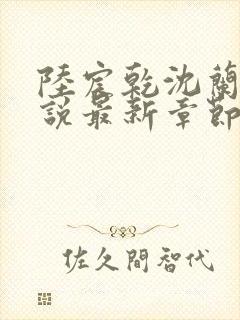 陸宸乾沈蘭
說最新章節
佐久間智代